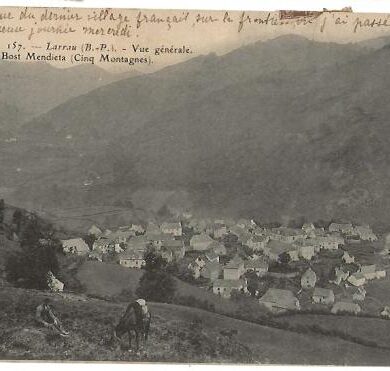 ue du dernier village français sur la frontière où j'ai passé
une journée mercredi.
157. — Larrau (B.-P.). - Vue générale.
Bost Mendieta (Cinq Montagnes).